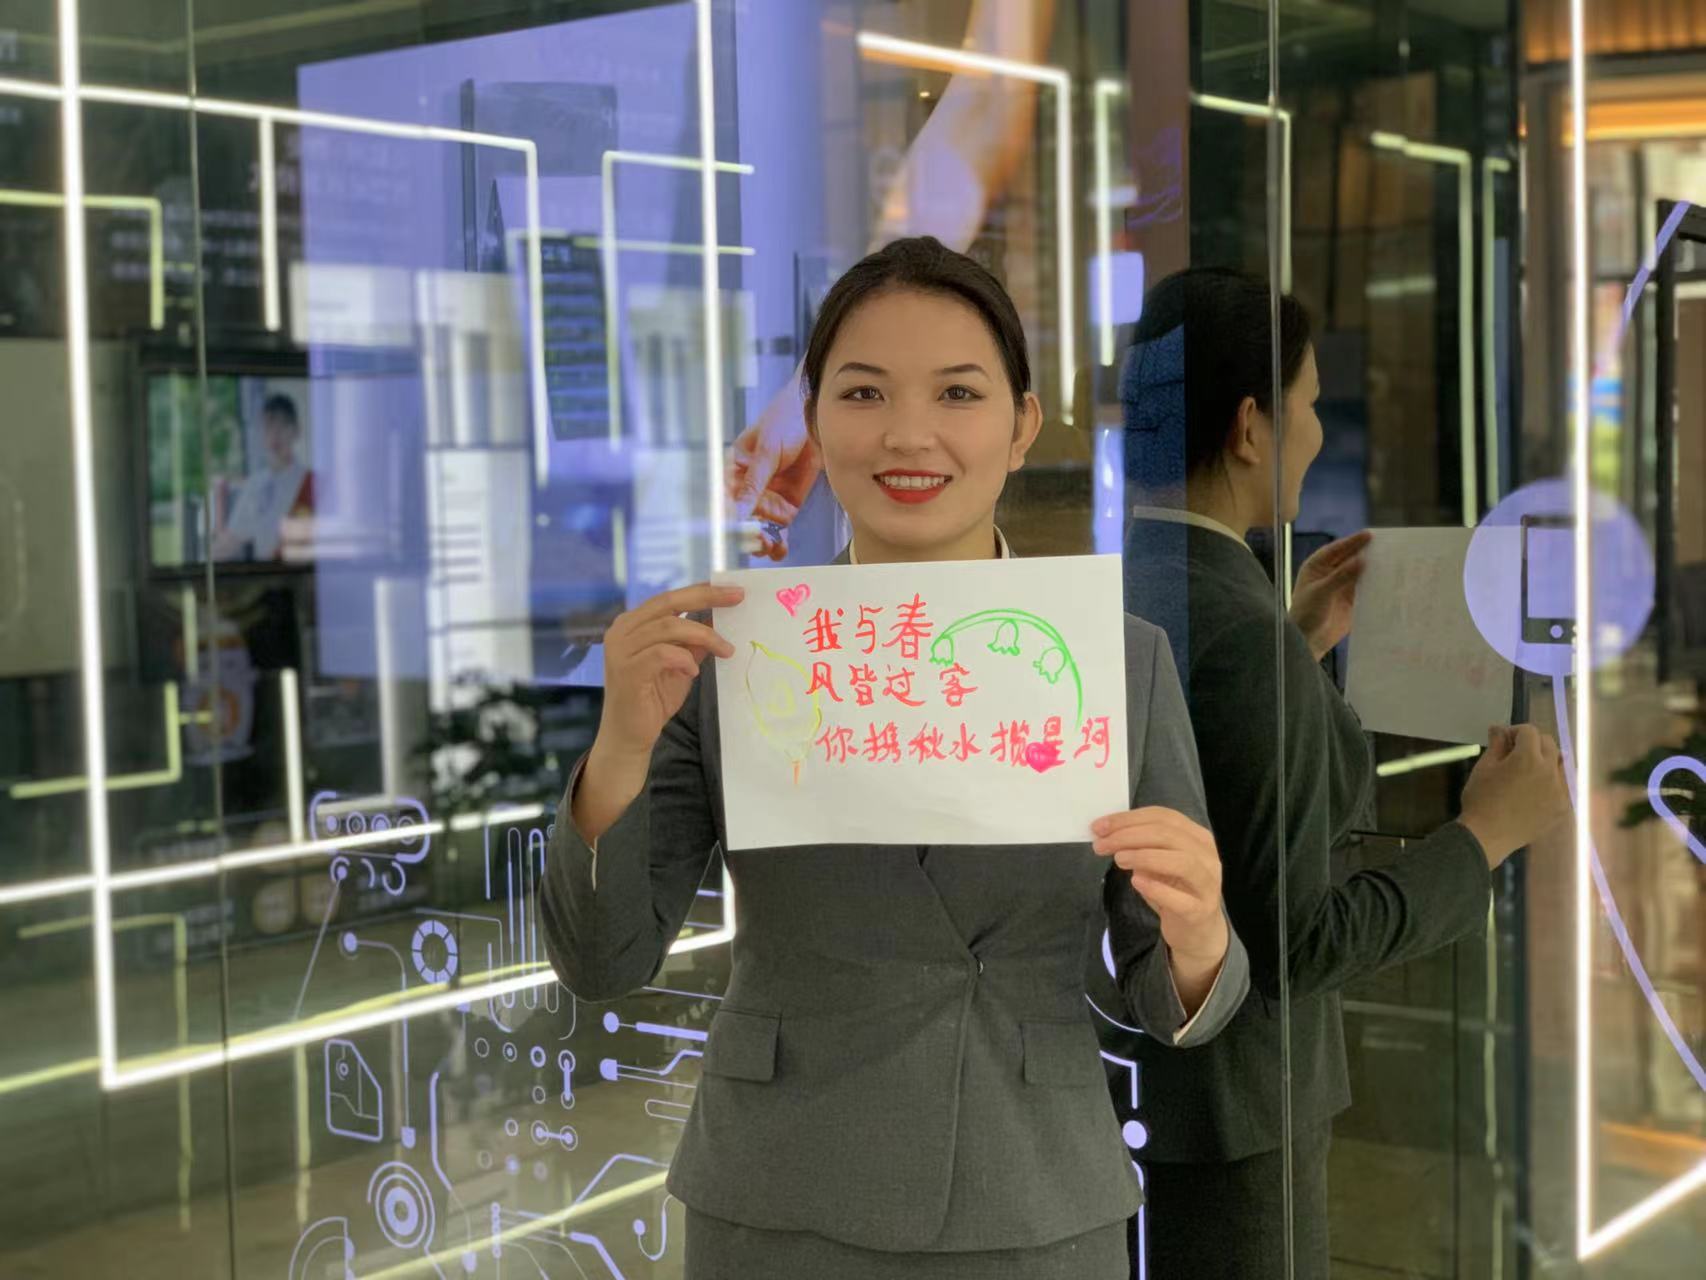 我与春
风皆过客
你携秋水揽星河